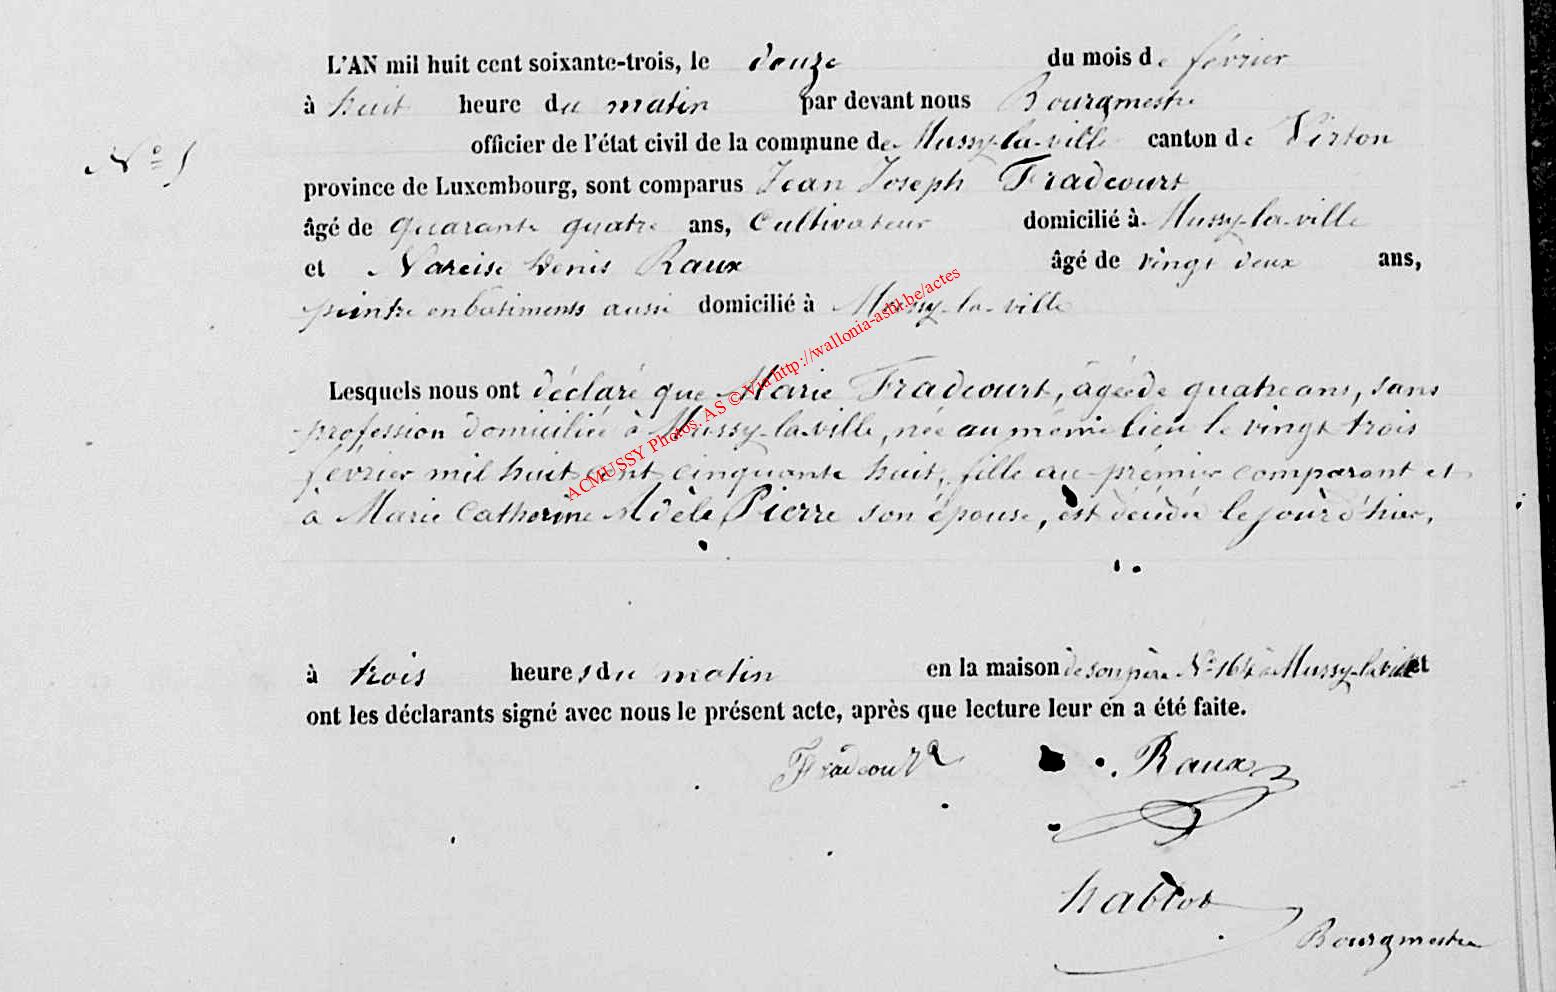 L'AN mil huit cent soixante-trois, le douze du mois de février
à huit heure du matin par devant nous Bourgmestre
officier de l'état civil de la commune de Mussy-la-ville canton de Virton
N° 5
province de Luxembourg, sont comparus Jean Joseph Fradcourt
âgé de quarante quatre ans, Cultivateur domicilié à Mussy-la-ville
et Narcise Denis Raux âgé de vingt deux ans,
peintre en batiments aussi domicilié à Mussy-la-ville
Lesquels nous ont déclaré que Marie Fradcourt, âgée de quatre ans, sans
profession domiciliée à Mussy-la-ville, née au même lieu le vingt trois
février mil huit cent cinquante huit, fille au prémier comparant et
à Marie Catherine Adèle Pierre son épouse, est décédée le jour d'hier,
à trois heures du matin en la maison de son père N° 164 à Mussy-la-ville et
ont les déclarants signé avec nous le présent acte, après que lecture leur en a été faite.
Fradcourt Raux
Bourgmestre
ACMUSSY Photos. AS © Via http://wallonia-asbl.be/actes